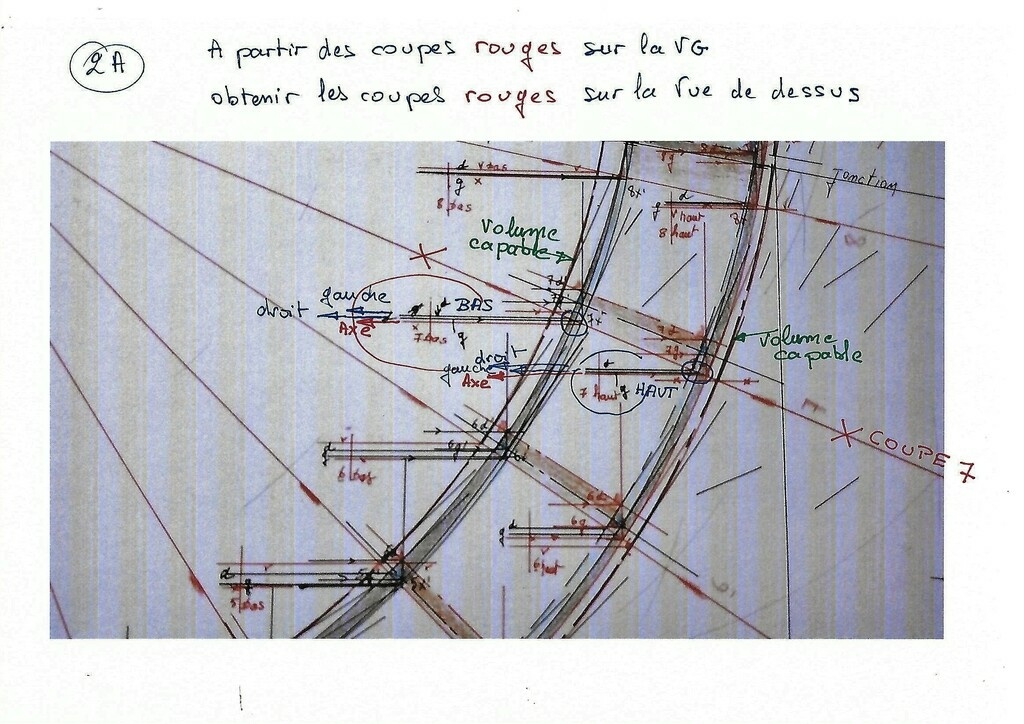 2A
A partir des coupes rouges sur la VG
obtenir les coupes rouges sur la vue de dessus
d
v bas
v
g
x
8 bas
8g
8x'
d
g
v haut
8 haut
Jonction
8
volume
capable
gauche
droit
Axe
d
BAS
7 bas
g
7d
7x'
droit
gauche
Axe
d
7 haut
g
HAUT
7d
7g
volume
capable
7
COUPE 7
d
v
6 bas
6d'
6g'
d
g
v
6 haut
6d
6g
d
g
v
5 bas